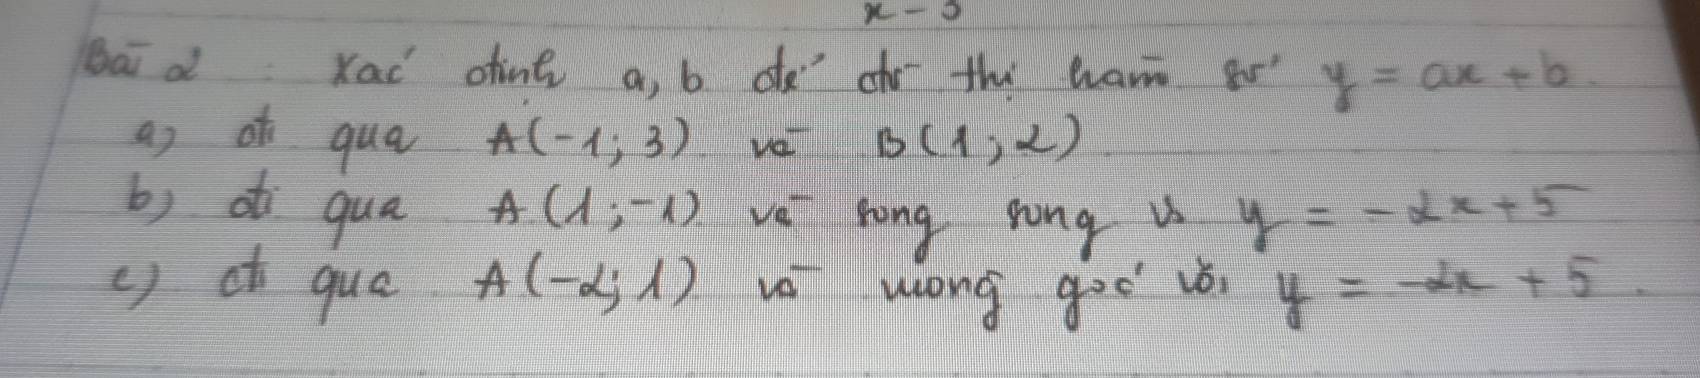 x - 3
Bài 2 : Xác định a, b để đồ thị hàm số y = ax + b.
a) đi qua A(-1; 3) và B(1; 2)
b) đi qua A(1; -1) và song song vs y = -2x + 5
c) đi qua A(-2; 1) và vuông góc với y = -2x + 5.